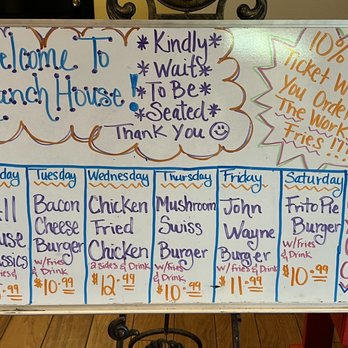 Welcome To
Ranch House!
*Kindly*
*Wait*
*To Be*
*Seated*
Thank You ☺
10%
Ticket W
You Order
The Work
Fries!!!
day
House
assics
Fries &
.99
Tuesday
Bacon
Cheese
Burger
w/Fries
& Drink
$10.99
Wednesday
Chicken
Fried
Chicken
2 sides & Drink
$12.99
Thursday
Mushroom
Swiss
Burger
w/Fries
& Drink
$10.99
Friday
John
Wayne
Burger
w/Fries & Drink
$11.99
Saturday
Frito Pie
Burger
w/Fries
& Drink
$10.99